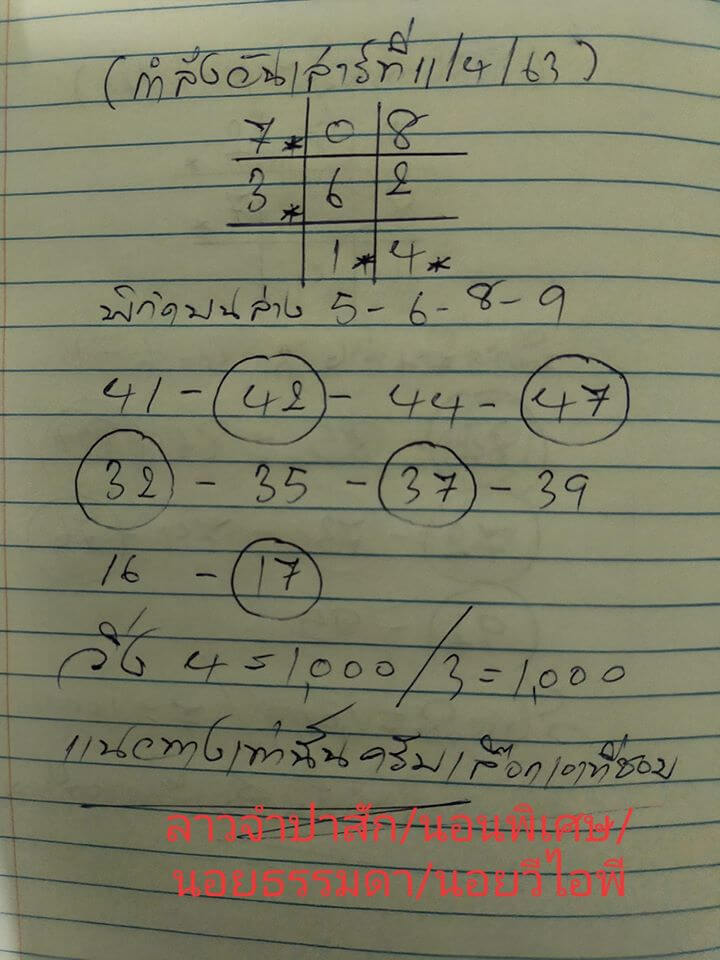 (กำลังวันเสาร์ที่ 11/4/63)
7* 0 8
3* 6 2
1* 4*
พิกัดบนล่าง 5-6-8-9
41 - 42 - 44 - 47
32 - 35 - 37 - 39
16 - 17
วิ่ง 4=1,000/3=1,000
แนวทางเท่านั้นครับเลือกเอาที่ชอบ
ลาวจำปาสัก/นอนพิเศษ/
นอยธรรมดา/นอยวีไอพี